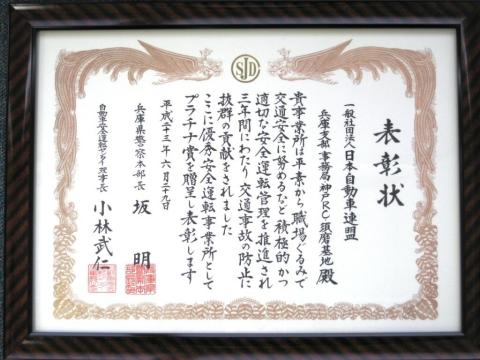 SJD
表彰状
一般社団法人日本自動車連盟
兵庫支部事務局神戸RC須磨基地 殿
貴事業所は平素から職場ぐるみで
交通安全に努めるなど積極的かつ
適切な安全運転管理を推進され
三年間にわたり交通事故の防止に
抜群の貢献をされました
ここに優秀安全運転事業所として
プラチナ賞を贈呈し表彰します
平成二十三年六月二十九日
兵庫県警察本部長 坂 明
自動車安全運転センター理事長 小林武仁